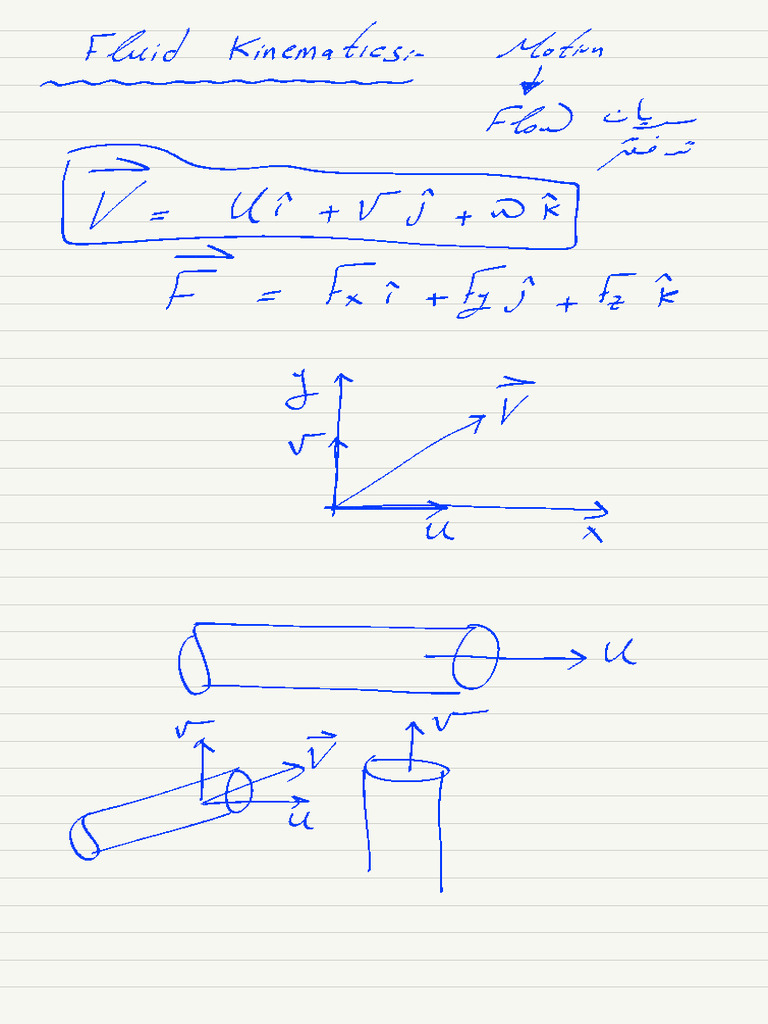 Fluid Kinematics:- Motion
Flow سريان
تدفق
V⃗ = u î + v ĵ + w k̂
F⃗ = Fx î + Fy ĵ + Fz k̂
y
V⃗
v
u
x
u
v
v
V⃗
u